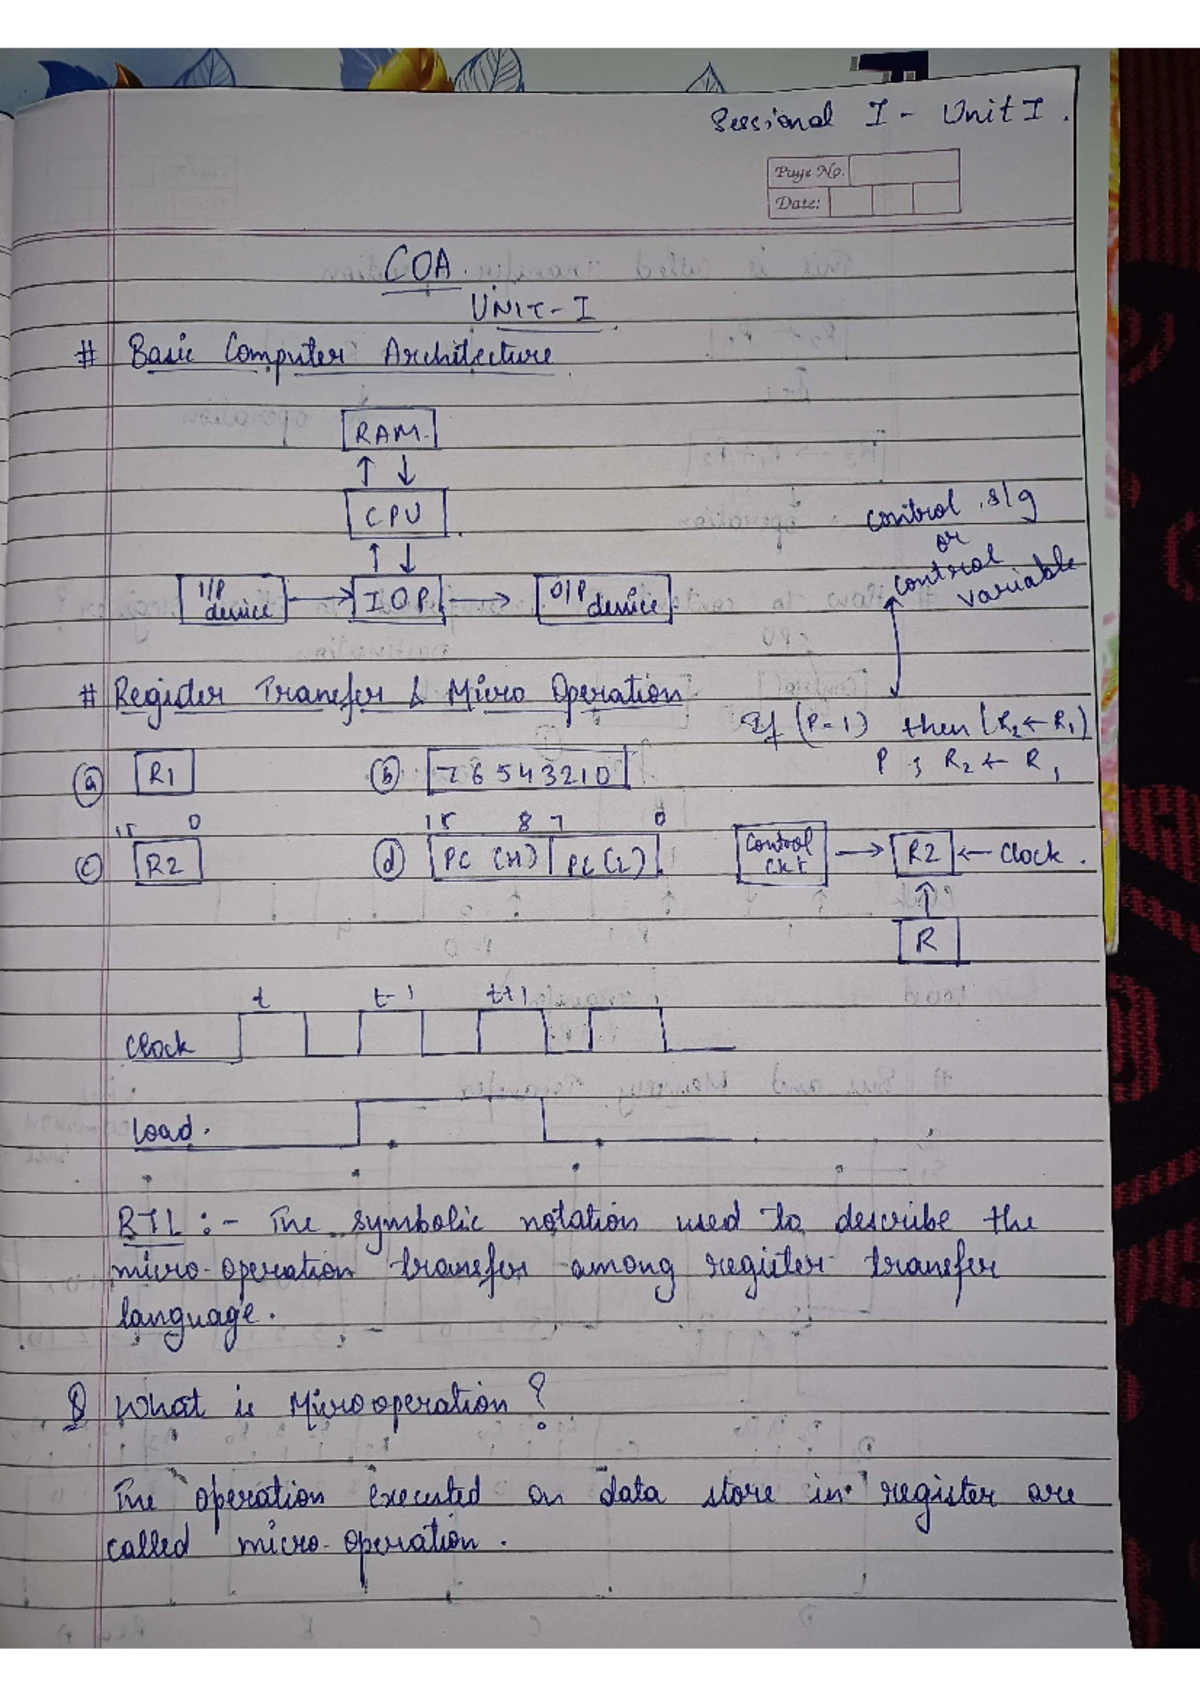 Sessional I - Unit I.
Page No.
Date:
COA.
UNIT-I
# Basic Computer Architecture
RAM.
CPU
I/P device
IOP
O/P device
control s/g
or
control variable
# Register Transfer & Micro Operation
If (P=1) then (R2 ← R1)
P ; R2 ← R1
(a) R1
(b) 7 6 5 4 3 2 1 0
15 0
(c) R2
15 8 7 0
(d) PC (H) PC (L)
Control Ckt
R2
Clock.
R
t t-1 t+1
Clock
Load.
RTL :- The symbolic notation used to describe the
micro-operation transfer among register transfer
language.
Q What is Microoperation?
The operation executed on data store in register are
called micro-operation.